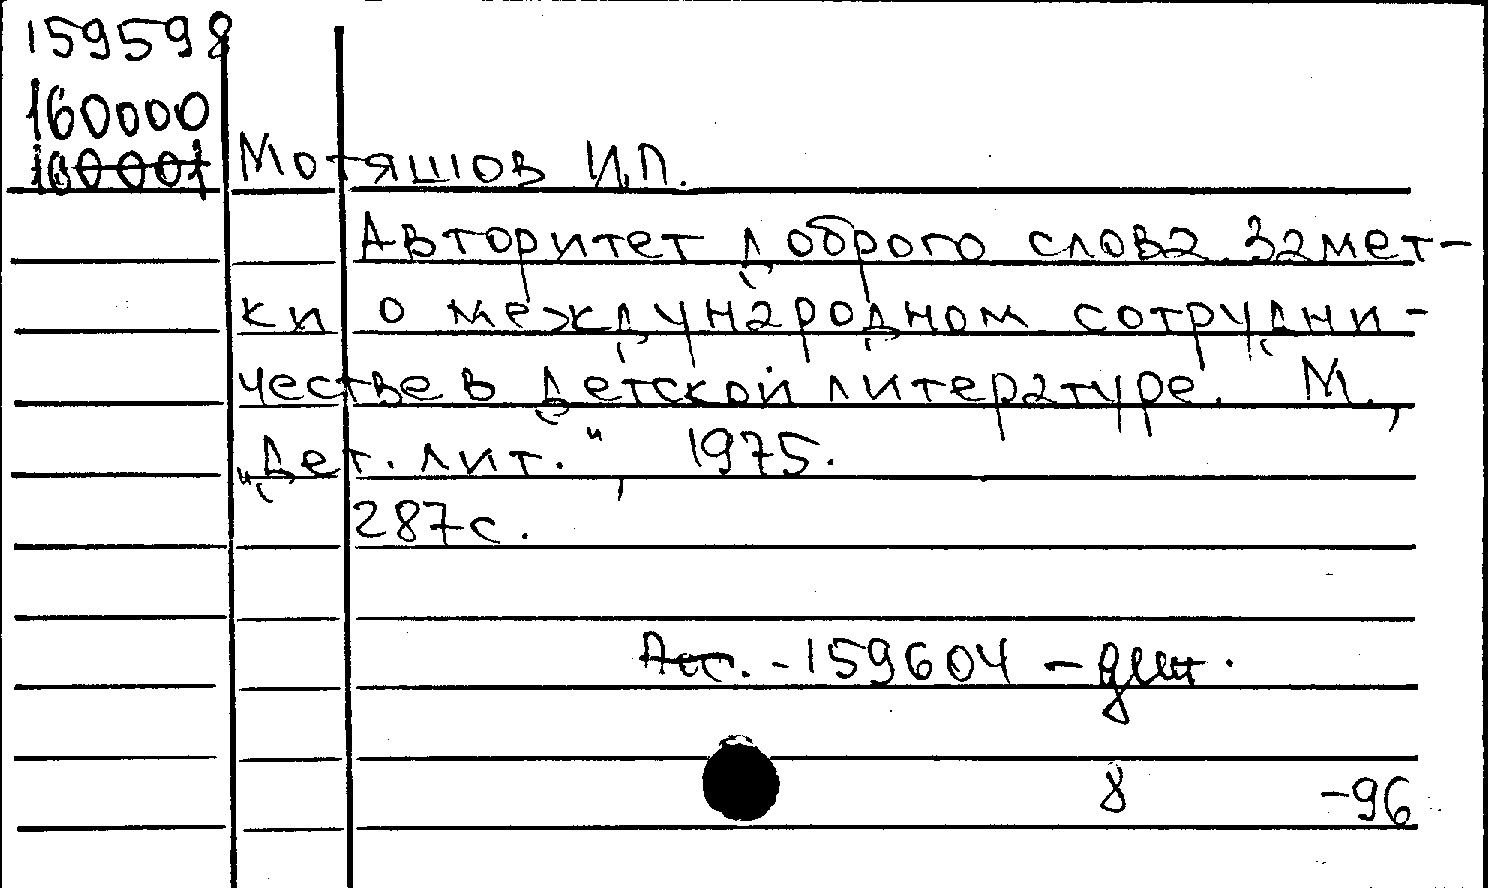 159598
160000
160001
Мотяшов И.П.
Авторитет доброго слова. Замет-
ки о международном сотрудни-
честве в детской литературе. М.,
„Дет. лит.“, 1975.
287с.
-159604 -
8 -96